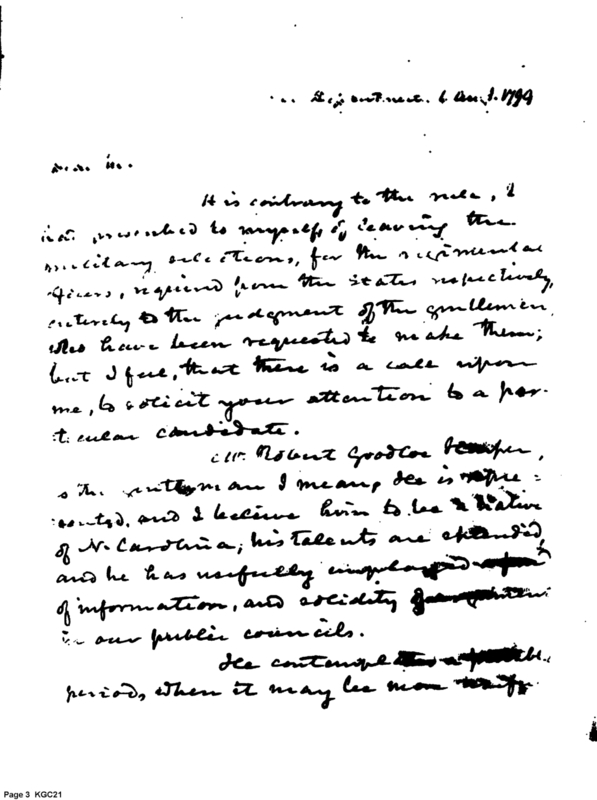 1799
It is contrary to the rule, I
had prescribed to myself, of leaving the
military selections, for the regimental
officers, required from the States respectively,
entirely to the judgment of the gentlemen,
who have been requested to make them;
but I feel, that there is a call upon
me, to solicit your attention to a par-
ticular candidate.
Mr. Robert Goodloe Harper,
is the gentleman I mean, He is repre=
sented, and I believe him to be a native
of N. Carolina; his talents are
and he has usefully
of information, and solidity
in our public councils.
He
period, when it may be more
Page 3 KGC21